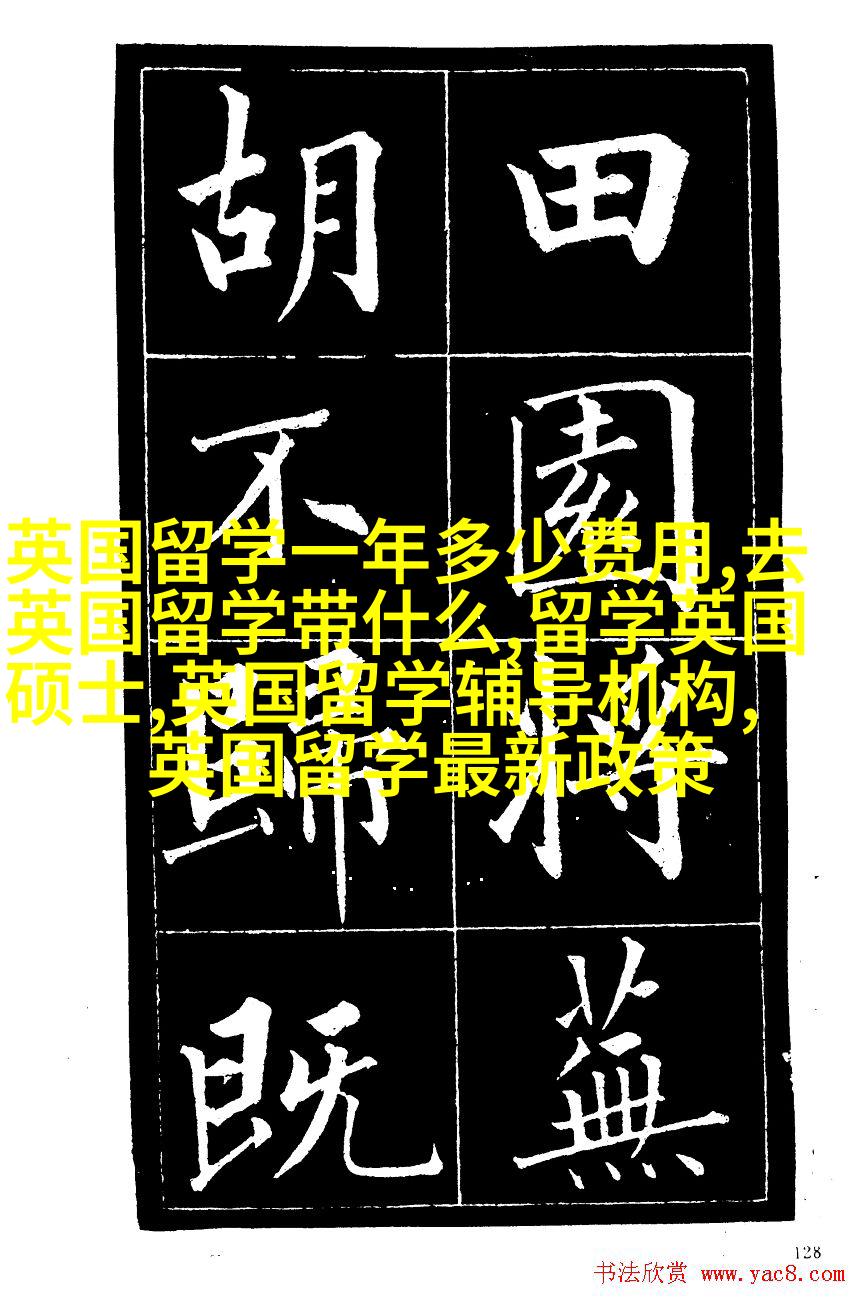 田園將蕪
胡不歸既
英国留学一年多少费用,去
英国留学带什么,留学英国
硕士,英国留学辅导机构,
英国留学最新政策
128
书法欣赏 www.yac8.com